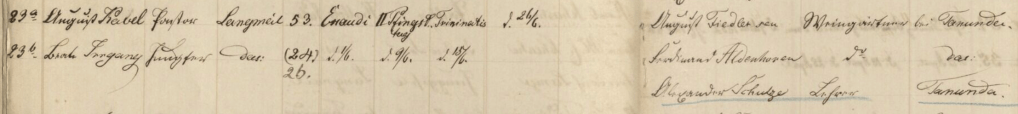 23a. August Kabel Pastor Langmeil 53. Exaudi II Pfingst Trinitatis d. 26/6. August Fiedler sen Weingärtner bei Tanunda.
tag
23b. Beate Irrgang Jungfer das: (24) d. 1/6. d. 9/6. d. 15/6. Ferdinand Aldenhoven do das:
26.
Alexander Schulze Lehrer Tanunda.